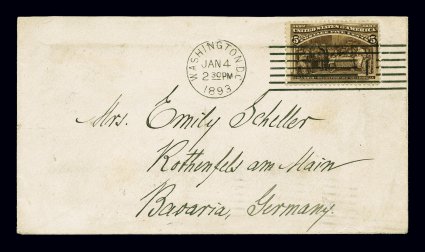 WASHINGTON D.C.
JAN 4
2 30 PM
1893
UNITED STATES OF AMERICA
5 5
Mrs. Emily Scheller
Rothenfels am Main
Bavaria, Germany.